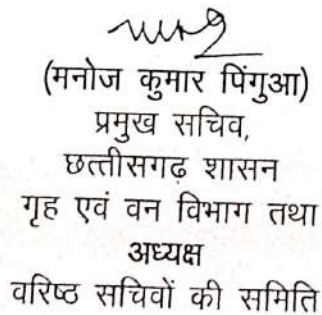 (मनोज कुमार पिंगुआ)
प्रमुख सचिव,
छत्तीसगढ़ शासन
गृह एवं वन विभाग तथा
अध्यक्ष
वरिष्ठ सचिवों की समिति